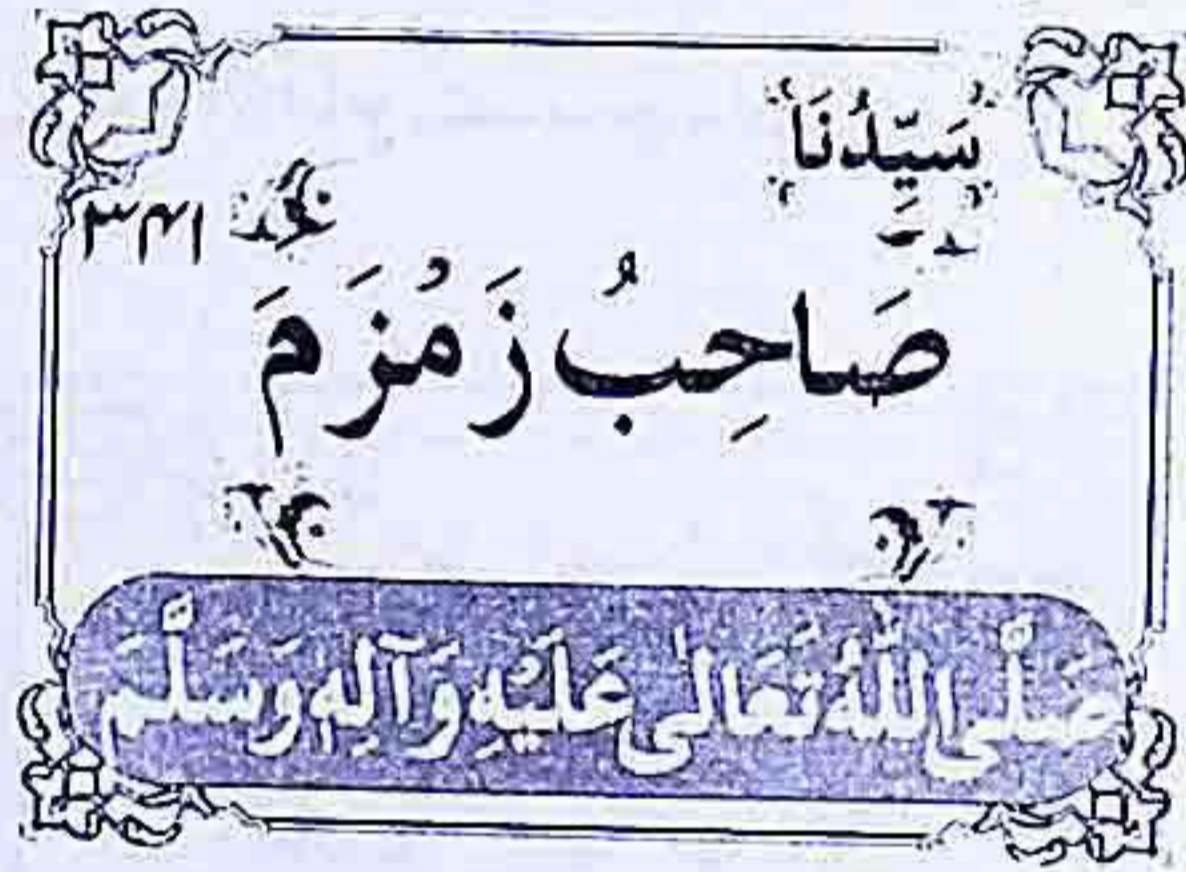 سَيِّدُنَا
۳۴۱
صَاحِبُ زَمْزَمَ
صَلَّى اللّٰهُ تَعَالٰى عَلَيْهِ وَآلِهٖ وَسَلَّمَ